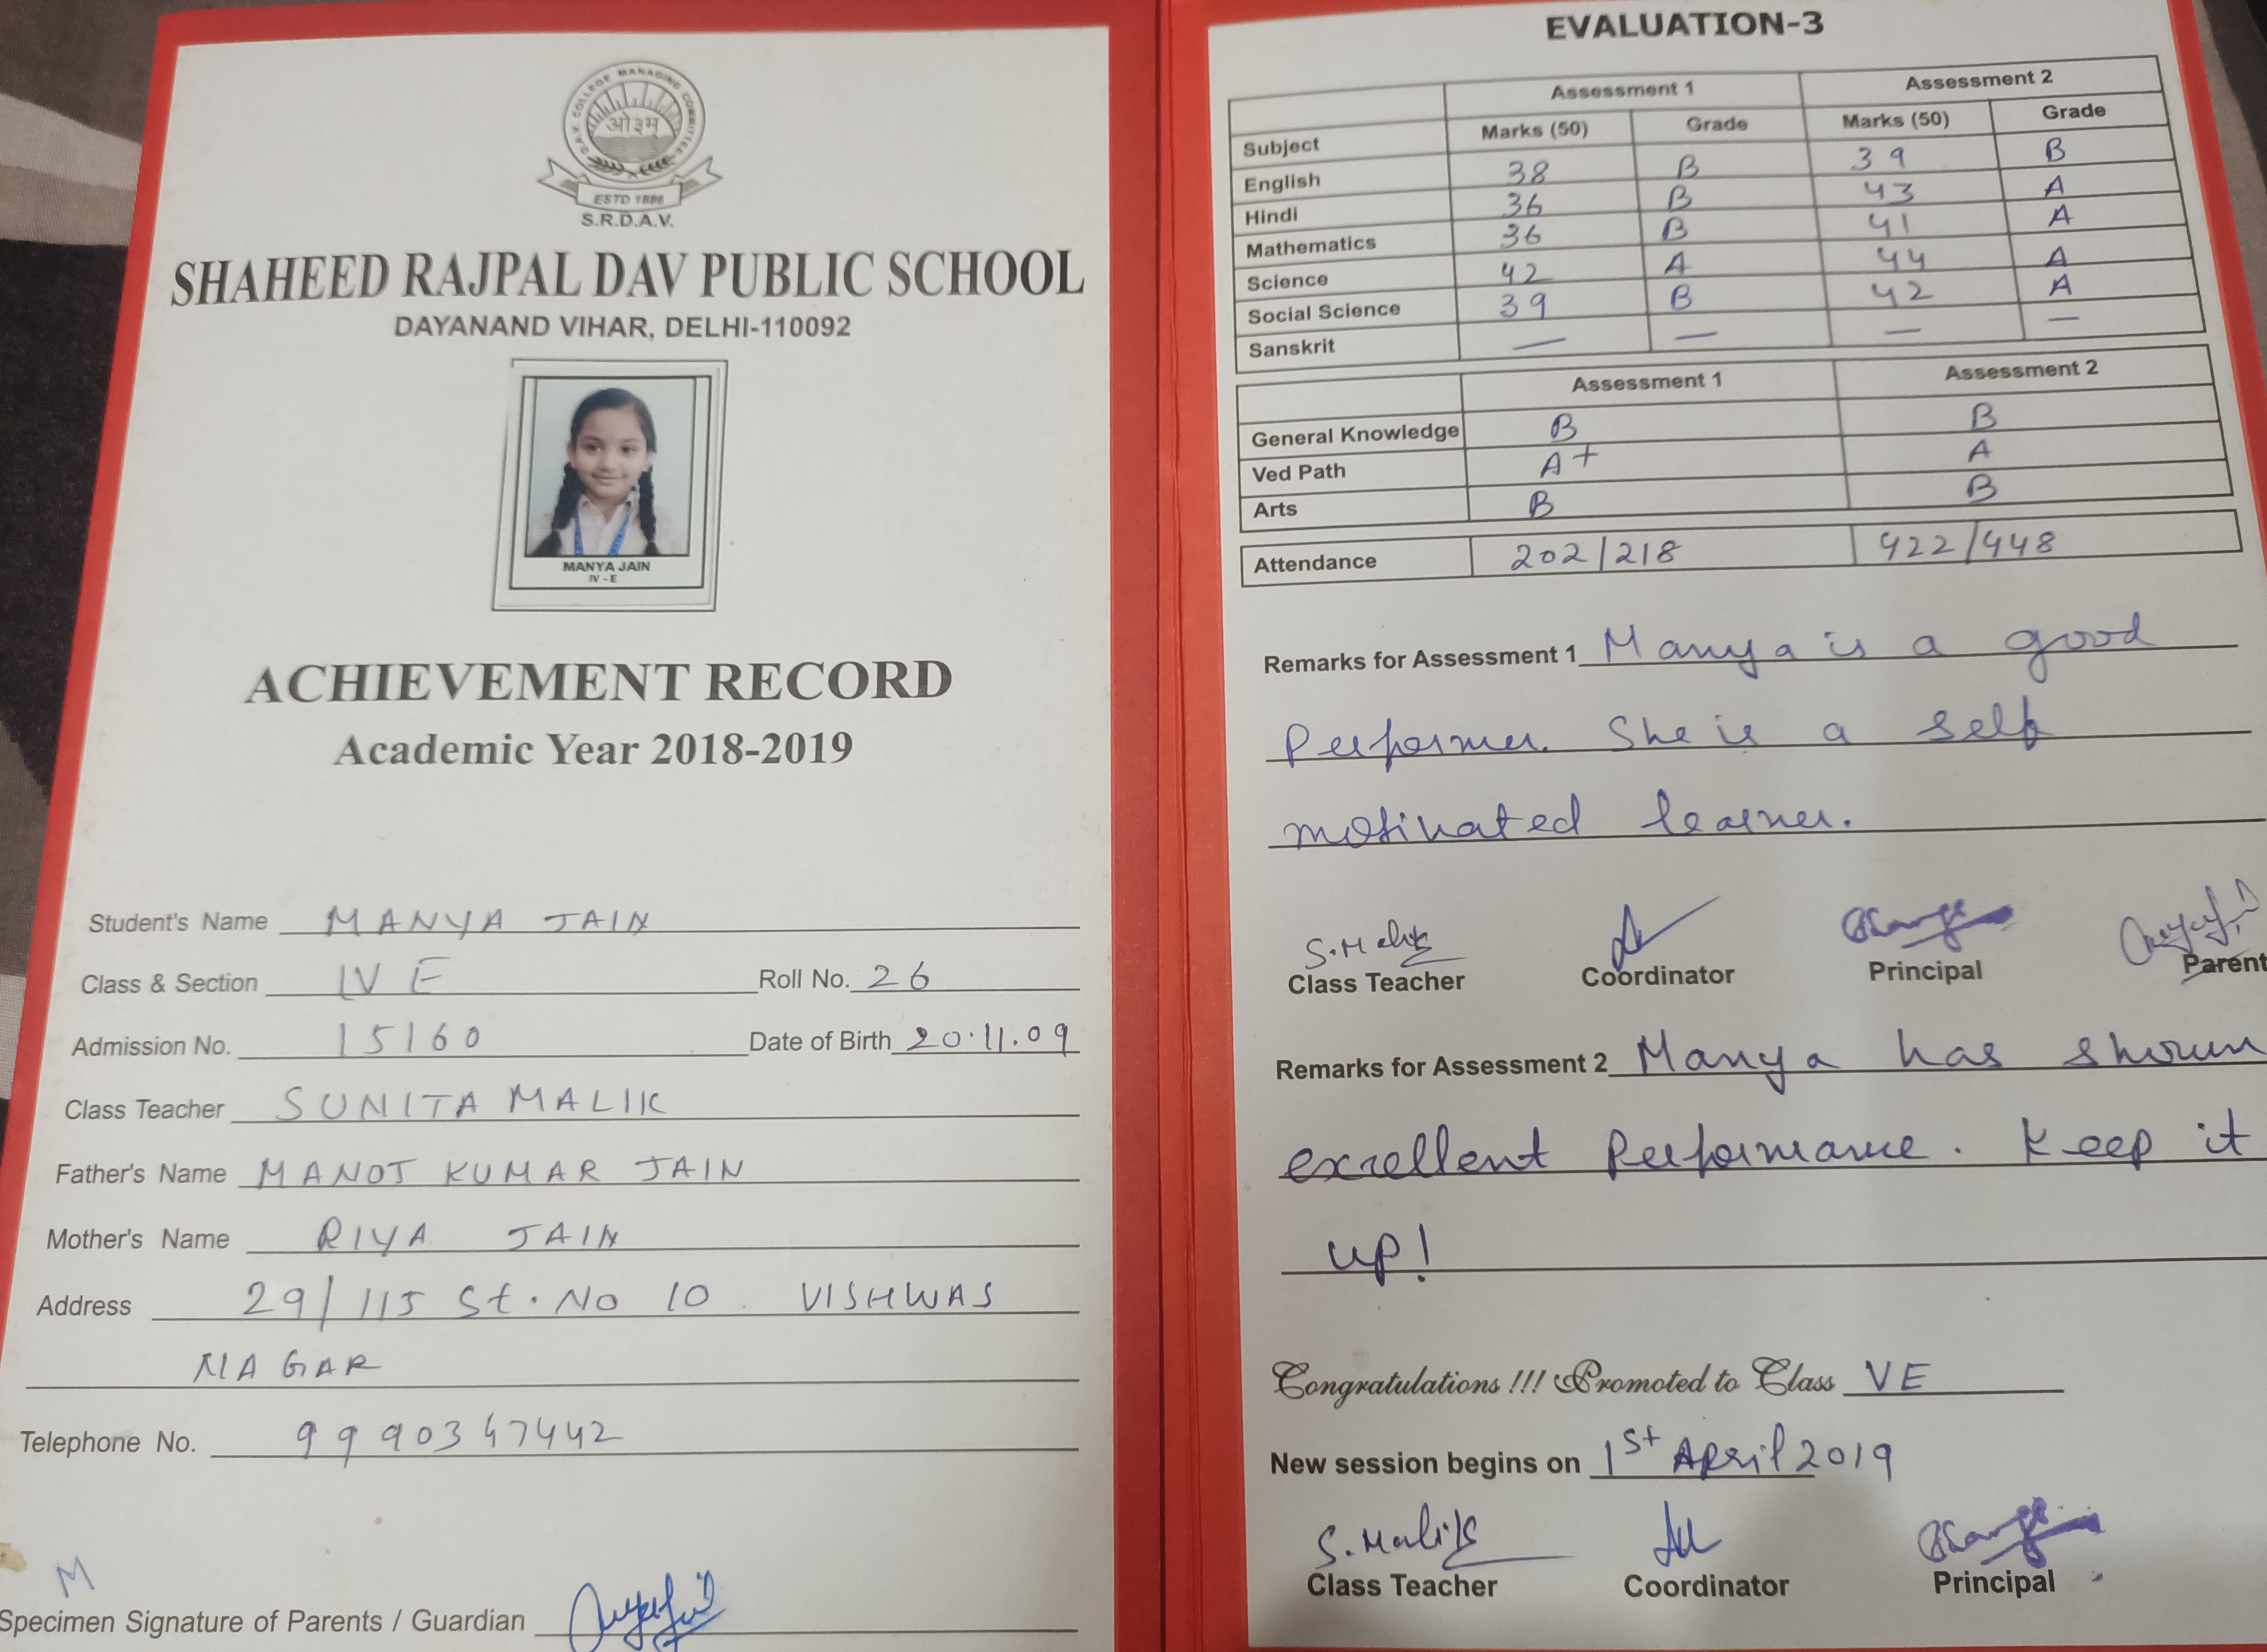 D.A.V. COLLEGE MANAGING COMMITTEE
ओ३म्
ESTD 1886
S.R.D.A.V.
SHAHEED RAJPAL DAV PUBLIC SCHOOL
DAYANAND VIHAR, DELHI-110092
MANYA JAIN
IV - E
ACHIEVEMENT RECORD
Academic Year 2018-2019
Student's Name MANYA JAIN
Class & Section IV E Roll No. 26
Admission No. 15160 Date of Birth 20.11.09
Class Teacher SUNITA MALIK
Father's Name MANOJ KUMAR JAIN
Mother's Name RIYA JAIN
Address 29/115 St. No 10 VISHWAS
NAGAR
Telephone No. 9990347442
M
Specimen Signature of Parents / Guardian
EVALUATION-3
Assessment 1 Assessment 2
Subject Marks (50) Grade Marks (50) Grade
English 38 B 39 B
Hindi 36 B 43 A
Mathematics 36 B 41 A
Science 42 A 44 A
Social Science 39 B 42 A
Sanskrit — — — —
Assessment 1 Assessment 2
General Knowledge B B
Ved Path A+ A
Arts B B
Attendance 202/218 422/448
Remarks for Assessment 1 Manya is a good
Performer. She is a self
motivated learner.
S. Malik
Class Teacher Coordinator Principal Parent
Remarks for Assessment 2 Manya has shown
excellent Performance. Keep it
up!
Congratulations !!! Promoted to Class VE
New session begins on 1st April 2019
S. Malik
Class Teacher Coordinator Principal